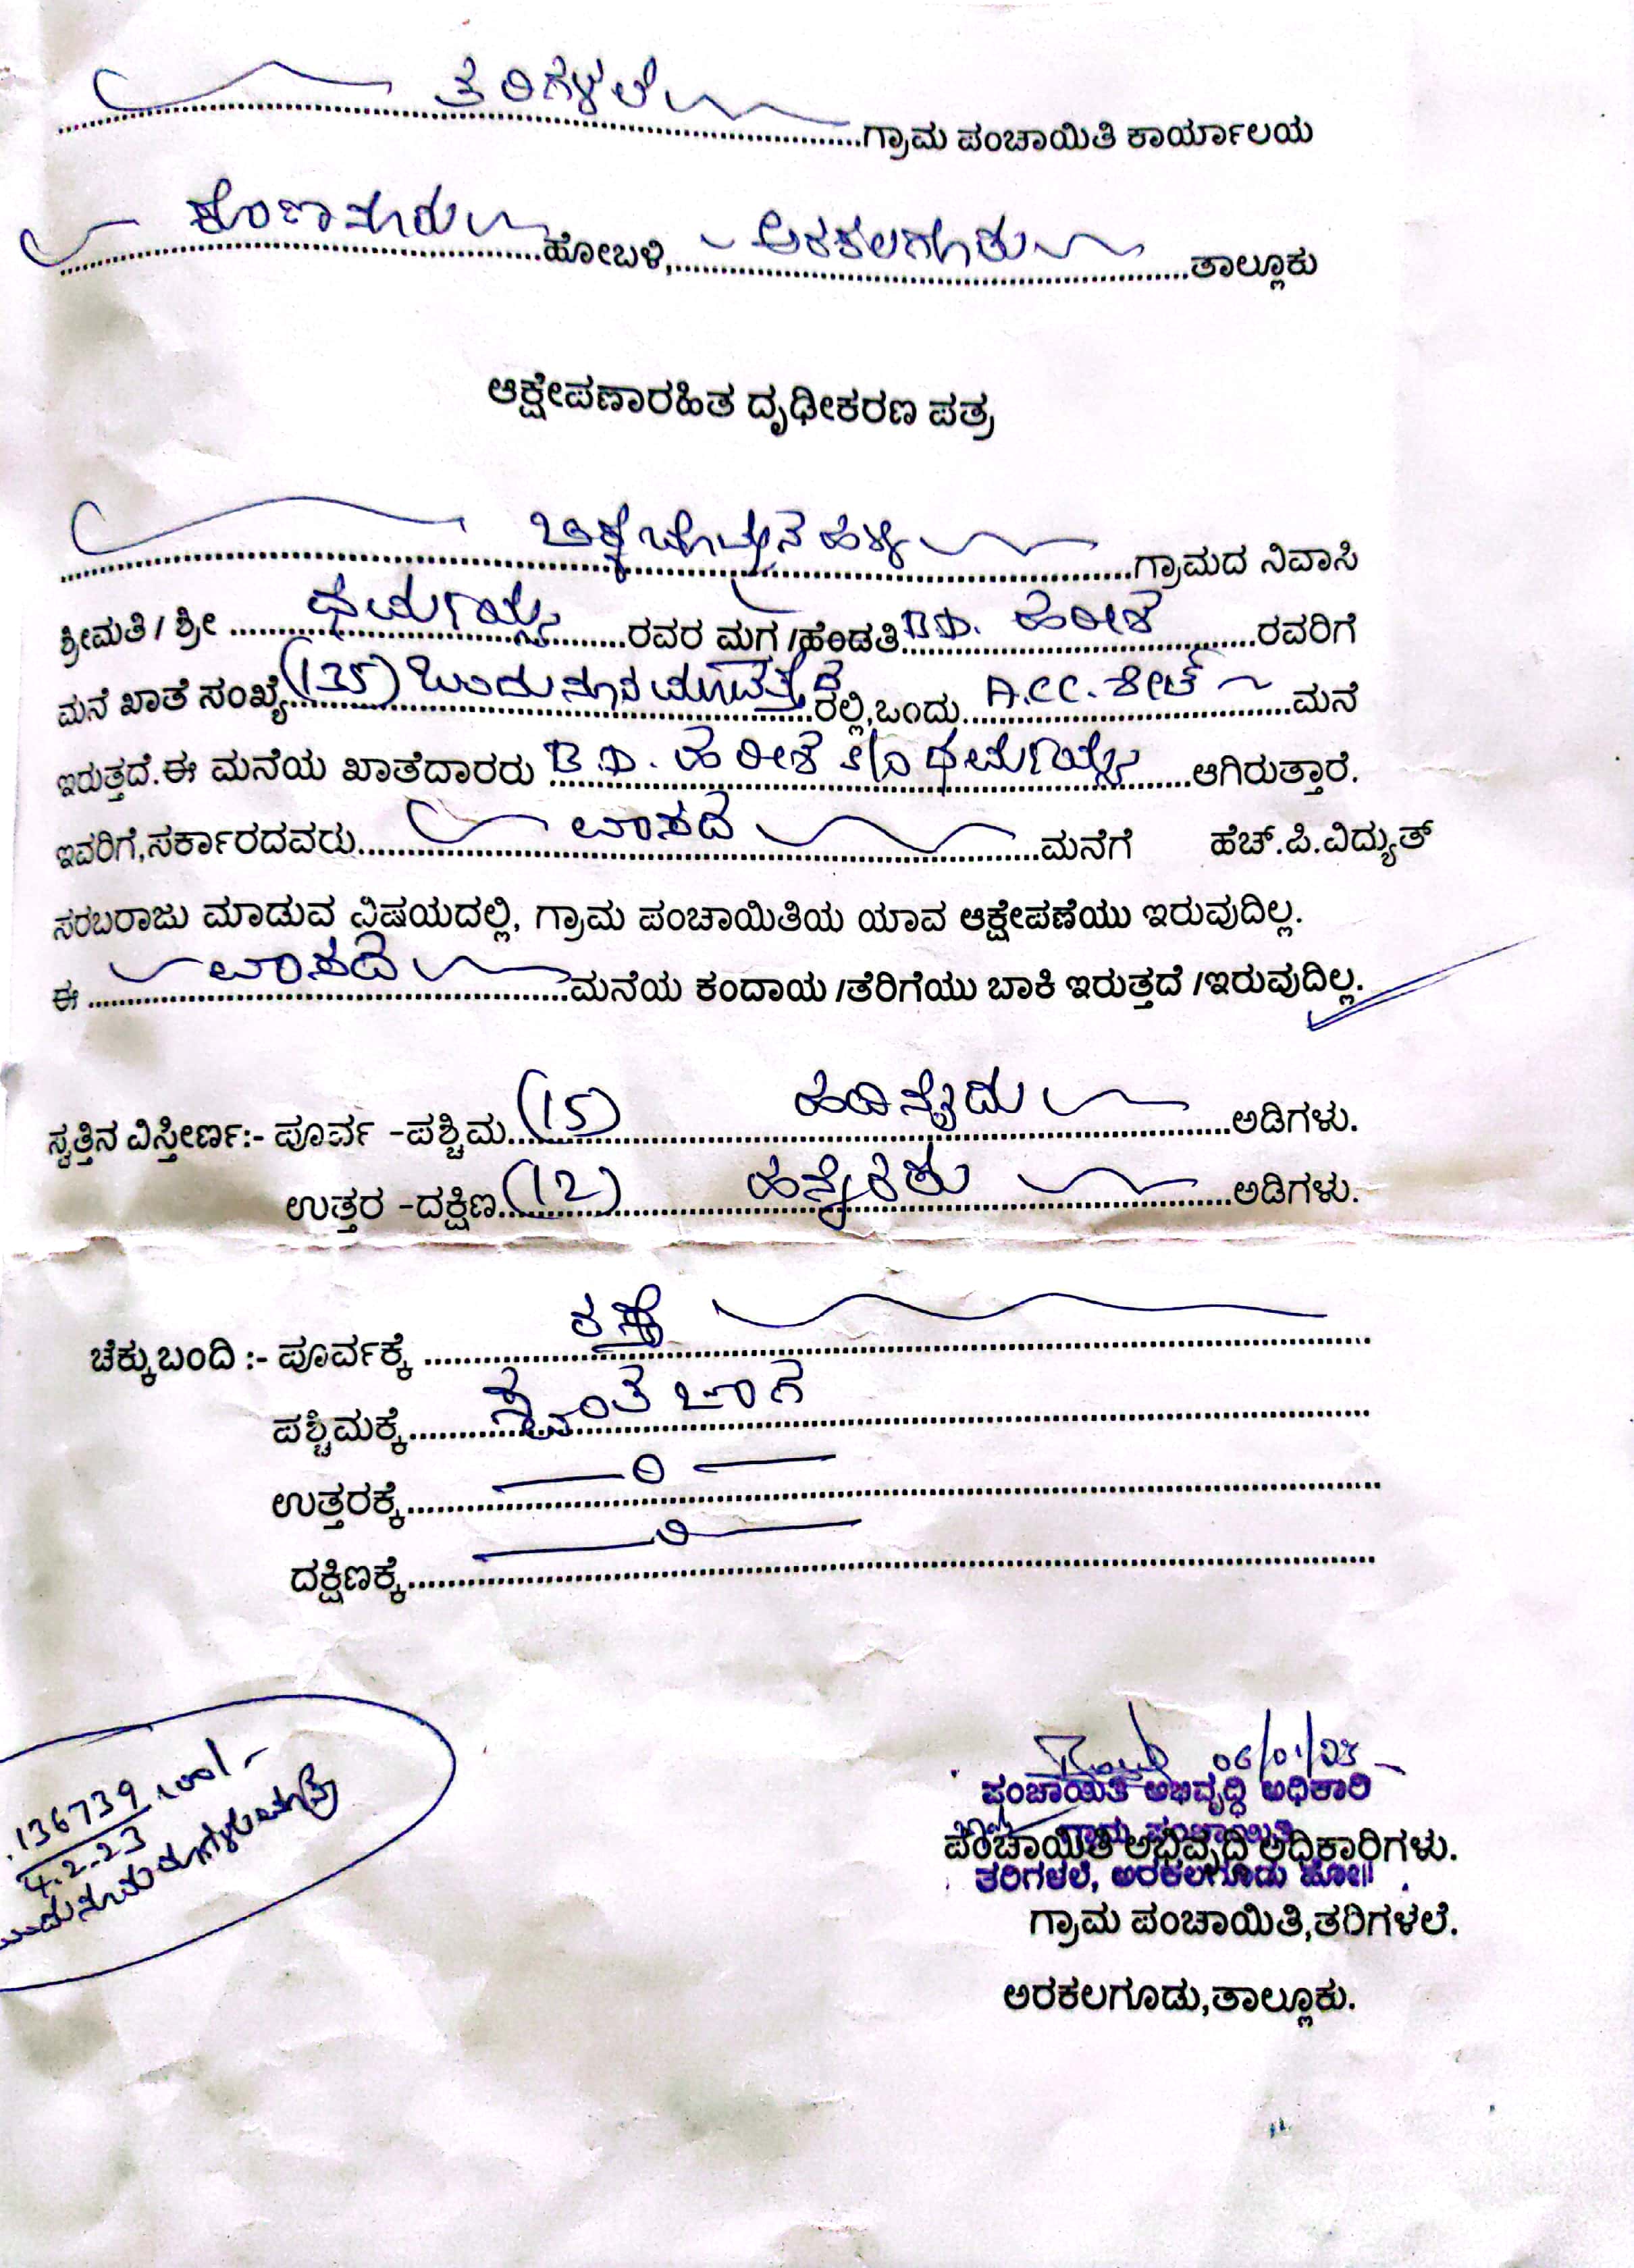 ತರಿಗಳಲೆ ಗ್ರಾಮ ಪಂಚಾಯಿತಿ ಕಾರ್ಯಾಲಯ
ಕೊಣನೂರು ಹೋಬಳಿ, ಅರಕಲಗೂಡು ತಾಲ್ಲೂಕು
ಆಕ್ಷೇಪಣಾರಹಿತ ದೃಢೀಕರಣ ಪತ್ರ
ಗ್ರಾಮದ ನಿವಾಸಿ
ಶ್ರೀಮತಿ / ಶ್ರೀ ಧರ್ಮಯ್ಯ ರವರ ಮಗ /ಹೆಂಡತಿ B.D. ಹರೀಶ ರವರಿಗೆ
ಮನೆ ಖಾತೆ ಸಂಖ್ಯೆ (135) ಒಂದು ನೂರ ಮೂವತ್ತೈದ ರಲ್ಲಿ,ಒಂದು A.C.C. ಶೀಟ್ ಮನೆ
ಇರುತ್ತದೆ.ಈ ಮನೆಯ ಖಾತೆದಾರರು B.D. ಹರೀಶ S/O ಧರ್ಮಯ್ಯ ಆಗಿರುತ್ತಾರೆ.
ಇವರಿಗೆ,ಸರ್ಕಾರದವರು ವಾಸದ ಮನೆಗೆ ಹೆಚ್.ಪಿ.ವಿದ್ಯುತ್
ಸರಬರಾಜು ಮಾಡುವ ವಿಷಯದಲ್ಲಿ, ಗ್ರಾಮ ಪಂಚಾಯಿತಿಯ ಯಾವ ಆಕ್ಷೇಪಣೆಯು ಇರುವುದಿಲ್ಲ.
ಈ ವಾಸದ ಮನೆಯ ಕಂದಾಯ /ತೆರಿಗೆಯು ಬಾಕಿ ಇರುತ್ತದೆ /ಇರುವುದಿಲ್ಲ.
ಸ್ವತ್ತಿನ ವಿಸ್ತೀರ್ಣ:- ಪೂರ್ವ -ಪಶ್ಚಿಮ (15) ಹದಿನೈದು ಅಡಿಗಳು.
ಉತ್ತರ -ದಕ್ಷಿಣ (12) ಹನ್ನೆರಡು ಅಡಿಗಳು.
ಚೆಕ್ಕುಬಂದಿ :- ಪೂರ್ವಕ್ಕೆ ರಸ್ತೆ
ಪಶ್ಚಿಮಕ್ಕೆ ಸ್ವಂತ ಜಾಗ
ಉತ್ತರಕ್ಕೆ —0—
ದಕ್ಷಿಣಕ್ಕೆ —0—
136739
4.2.23
06/01/23
ಪಂಚಾಯಿತಿ ಅಭಿವೃದ್ಧಿ ಅಧಿಕಾರಿ
ಗ್ರಾಮ ಪಂಚಾಯಿತಿ
ಪಂಚಾಯಿತಿ ಅಭಿವೃದ್ಧಿ ಅಧಿಕಾರಿಗಳು.
ತರಿಗಳಲೆ, ಅರಕಲಗೂಡು ಹೋ॥
ಗ್ರಾಮ ಪಂಚಾಯಿತಿ,ತರಿಗಳಲೆ.
ಅರಕಲಗೂಡು,ತಾಲ್ಲೂಕು.